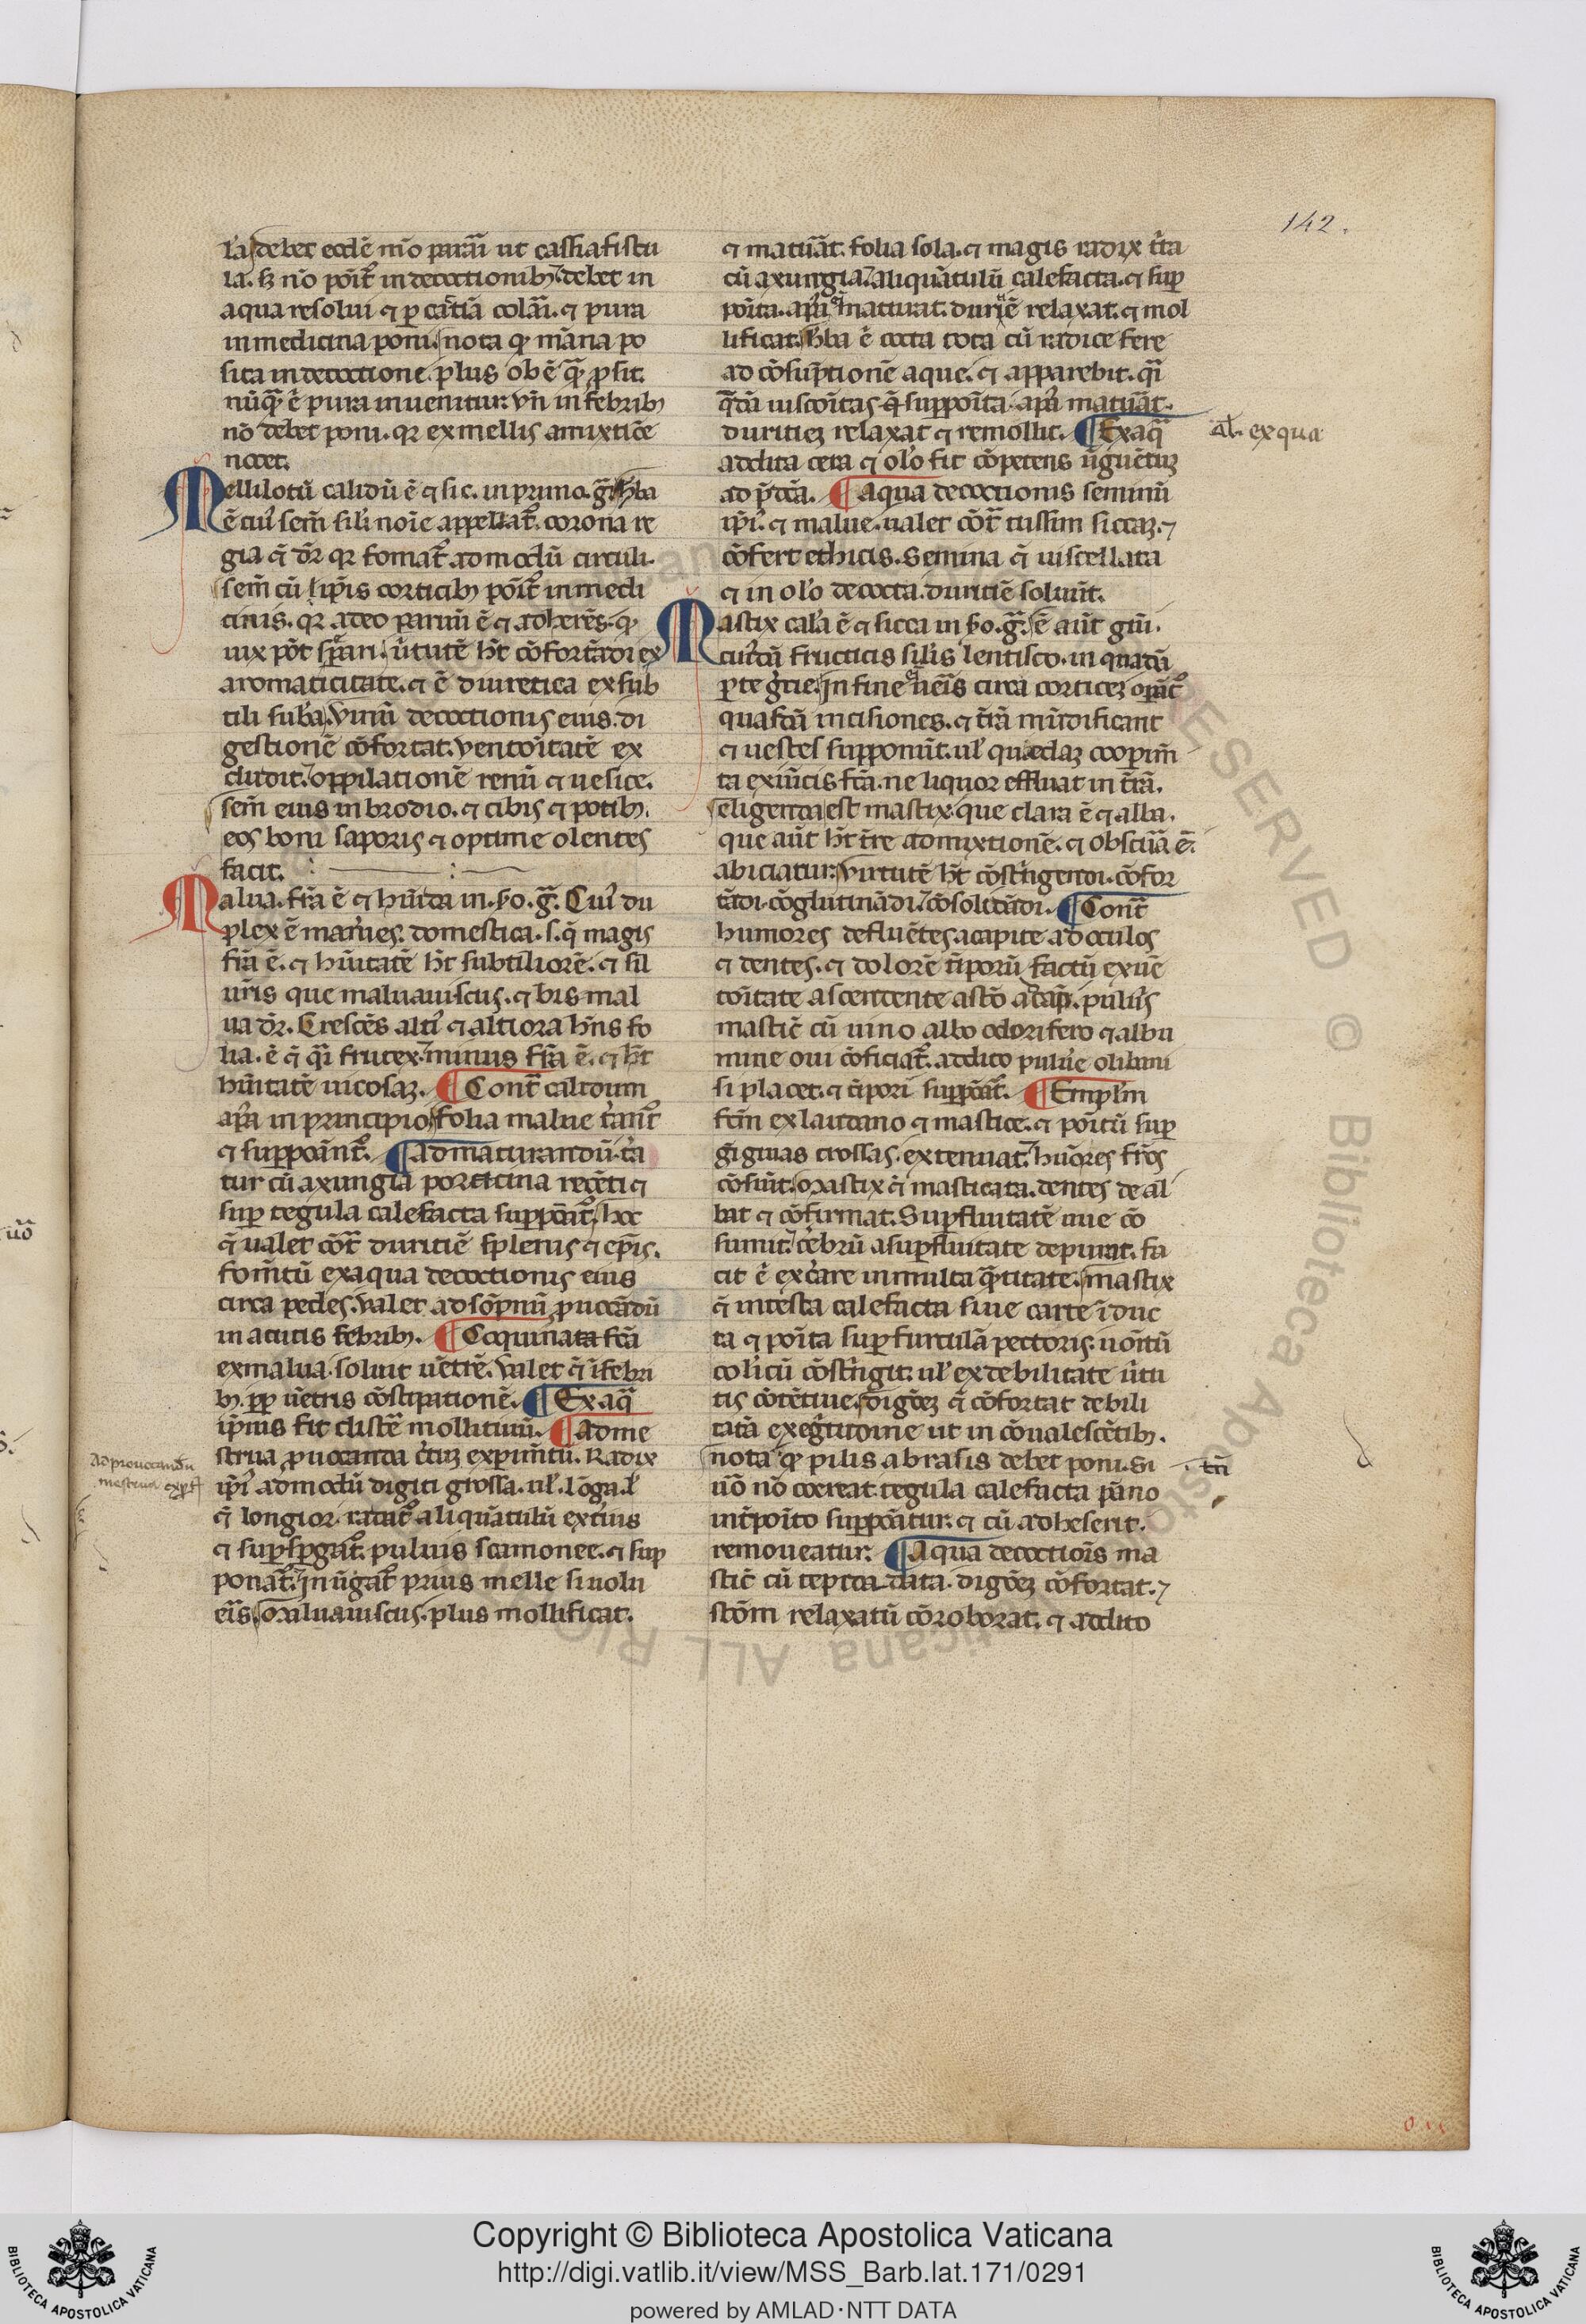 142.
ra debet eodē mo᷒ parari ut cassiafistu
la. sꝫ no᷒ poīt᷒ in decoctionibꝫ. debet in
aqua resolui ⁊ ꝑ catiā colari. ⁊ pura
in medicina poni. nota ꝙ māna po
sita in decoctione. plus obē q̄ ꝓsit.
nūq̄ ē pura inuenitur. vn̄ in febribꝫ
nō debet poni. qꝛ ex mellis amixtiōe
nocet.
Mellilotū calidū ē ⁊ sic. in primo. g̃. hba
ē cui᷒ sem̄ sil'i noīe appellat᷒. corona re
gia q̄ dr̄ qꝛ formāt᷒ ad modū circuli.
sem̄ cū ip̄is corticibꝫ poīt᷒ in medi
cinis. qꝛ adeo paruū ē ⁊ adherēs. ꝙ
uix pōt sp̄ari. ūtutē hꝫ cōfortādi ex
aromaticitate. ⁊ ē diuretica ex sub
tili suba. vinū decoctionis eius. di
gestionē cōfortat. ventoītatē ex
cludit. oppilationē renū ⁊ uesice.
sem̄ eius in brodio. ⁊ cibis ⁊ potibꝫ.
eos boni saporis ⁊ optime olentes
facit.
Malua. fr̄a ē ⁊ hūida in. s̄o. g̃. Cui᷒ du
plex ē maneries. domestica. s. q̄ magis
fr̄a ē. ⁊ hūitatē hꝫ subtiliorē. ⁊ sil
uris que maluauiscus. ⁊ bis mal
ua dr̄. Crescēs alti᷒ ⁊ altiora hn̄s fo
lia. ē q̄ q̄i frutex. minus fr̄a ē. ⁊ hꝫ
hūitatē uicosaꝫ. ¶ Cont̄ calidum
ap̄a in principio. folia malue t̄rant᷒
⁊ suppoānt᷒. ¶ ad maturandū. t̄ra
tur cū axungia porcina recēti ⁊
suꝑ tegula calefacta suppoāt᷒. hoc
q̄ ualet cōt̄ duritiē splenis ⁊ ep̄is.
fomētū ex aqua decoctionis eius
circa pedes. valet ad sōpnū ꝓuocādū
in acutis febribꝫ. ¶ Coquinata fc̄a
ex malua. soluit uētrē. valet q̄ ī febri
bꝫ. ꝓp uētris cōstipationē. ¶ Ex aq̄
ip̄ius fit clistē mollitiuū. ¶ Ad me
strua ꝓuocanda c̄tuꝫ experimtū. Radix
ip̄i᷒ ad modū digiti grossa. ul'. lōga. l'
q̄ longior. radat᷒ aliquātulū ext̄ius
⁊ suꝑspgat᷒. puluis scamonee. ⁊ suꝑ
ponat᷒. inūgat᷒ prius melle si uolu
eīs. maluauiscus. plus mollificat.
Ad prouocandū
mestrua exp̄t
⁊ maturat. folia sola. ⁊ magis radix t̄ta
cū axungia. aliquātulū calefacta. ⁊ suꝑ
poīta. ap̄a maturat. duriē relaxat. ⁊ mol
lificat. hba ē cocta tota cū radice fere
ad cōsuptionē aque. ⁊ apparebit. q̄i
q̄dā uiscoītas q̄ suppoīta. ap̄a maturat.
duritieꝫ relaxat ⁊ remollit. ¶ Ex aq̄
al'. ex qua
addita cera ⁊ olo fit cōpetens ūguētuꝫ
ad p̄dc̄a. ¶ Aqua decoctionis seminū
ip̄i᷒. ⁊ malue. ualet cōt̄ tussim siccaꝫ. ⁊
cōfert ethicis. Semina q̄ uiscellata
⁊ in olo decocta. duritiē soluūt.
Mastix cal'a ē ⁊ sicca in s̄o. g̃. ē aūt gūi.
cui᷒dā fructicis sil'is lentisco. in quadā
ꝑte grecie. In fine ueris circa corticeꝫ opāt᷒
quasdā incisiones. ⁊ t̄rā mūdificant
⁊ uestes supponūt. ul' quedaꝫ cooꝑim̄
ta ex iūcis fc̄a. ne liquor effluat in t̄rā.
eligenda est mastix. que clara ē ⁊ alba.
que aūt hꝫ t̄re admixtionē. ⁊ obscurā ē.
abiciatur. virtutē hꝫ cōstrīgendi. cōfor
tādi. cōglutinādi. cōsolidādi. ¶ Cont̄
humores defluētes. a capite ad oculos
⁊ dentes. ⁊ dolorē tīporū factū ex uē
toītate ascendente a stō ad cap̄. puluis
mastic̄ cū uino albo odorifero ⁊ albu
mine oui cōficiat᷒. addito puluē olibani
si placet. ⁊ tīpori suppoāt᷒. ¶ Emplm
fcm̄ ex laudano ⁊ mastice. ⁊ poītū suꝑ
gīgiuas crossas. extenuat. hūores frōs
cōsūit. Mastix q̄ masticata. dentes deal
bat ⁊ cōfirmat. Suꝑfluitatē uue cō
sumit. cerebrū a suꝑfluitate depurat. fa
cit ē excare in multa q̄titate. mastix
q̄ in testa calefacta siue carte īduc
ta ⁊ poīta suꝑ furculā pectoris. uoītū
col'icū cōstrīgit. ul' ex debilitate ūtu
tis cōtētiue. digōeꝫ q̄ cōfortat debili
tatā ex egritudine ut in cōualescētibꝫ.
nota ꝙ pilis abrasis debet poni. Si
· tn̄
uō nō coereat. tegula calefacta pāno
int̄poīto suppoātur. ⁊ cū adheserit.
remoueatur. ¶ Aqua decoctiōis ma
stic̄ cū tepida data. digōeꝫ cōfortat. ⁊
stōm relaxatū cōroborat. ⁊ addito
Copyright © Biblioteca Apostolica Vaticana
http://digi.vatlib.it/view/MSS_Barb.lat.171/0291
powered by AMLAD·NTT DATA
BIBLIOTECA APOSTOLICA VATICANA
BIBLIOTECA APOSTOLICA VATICANA